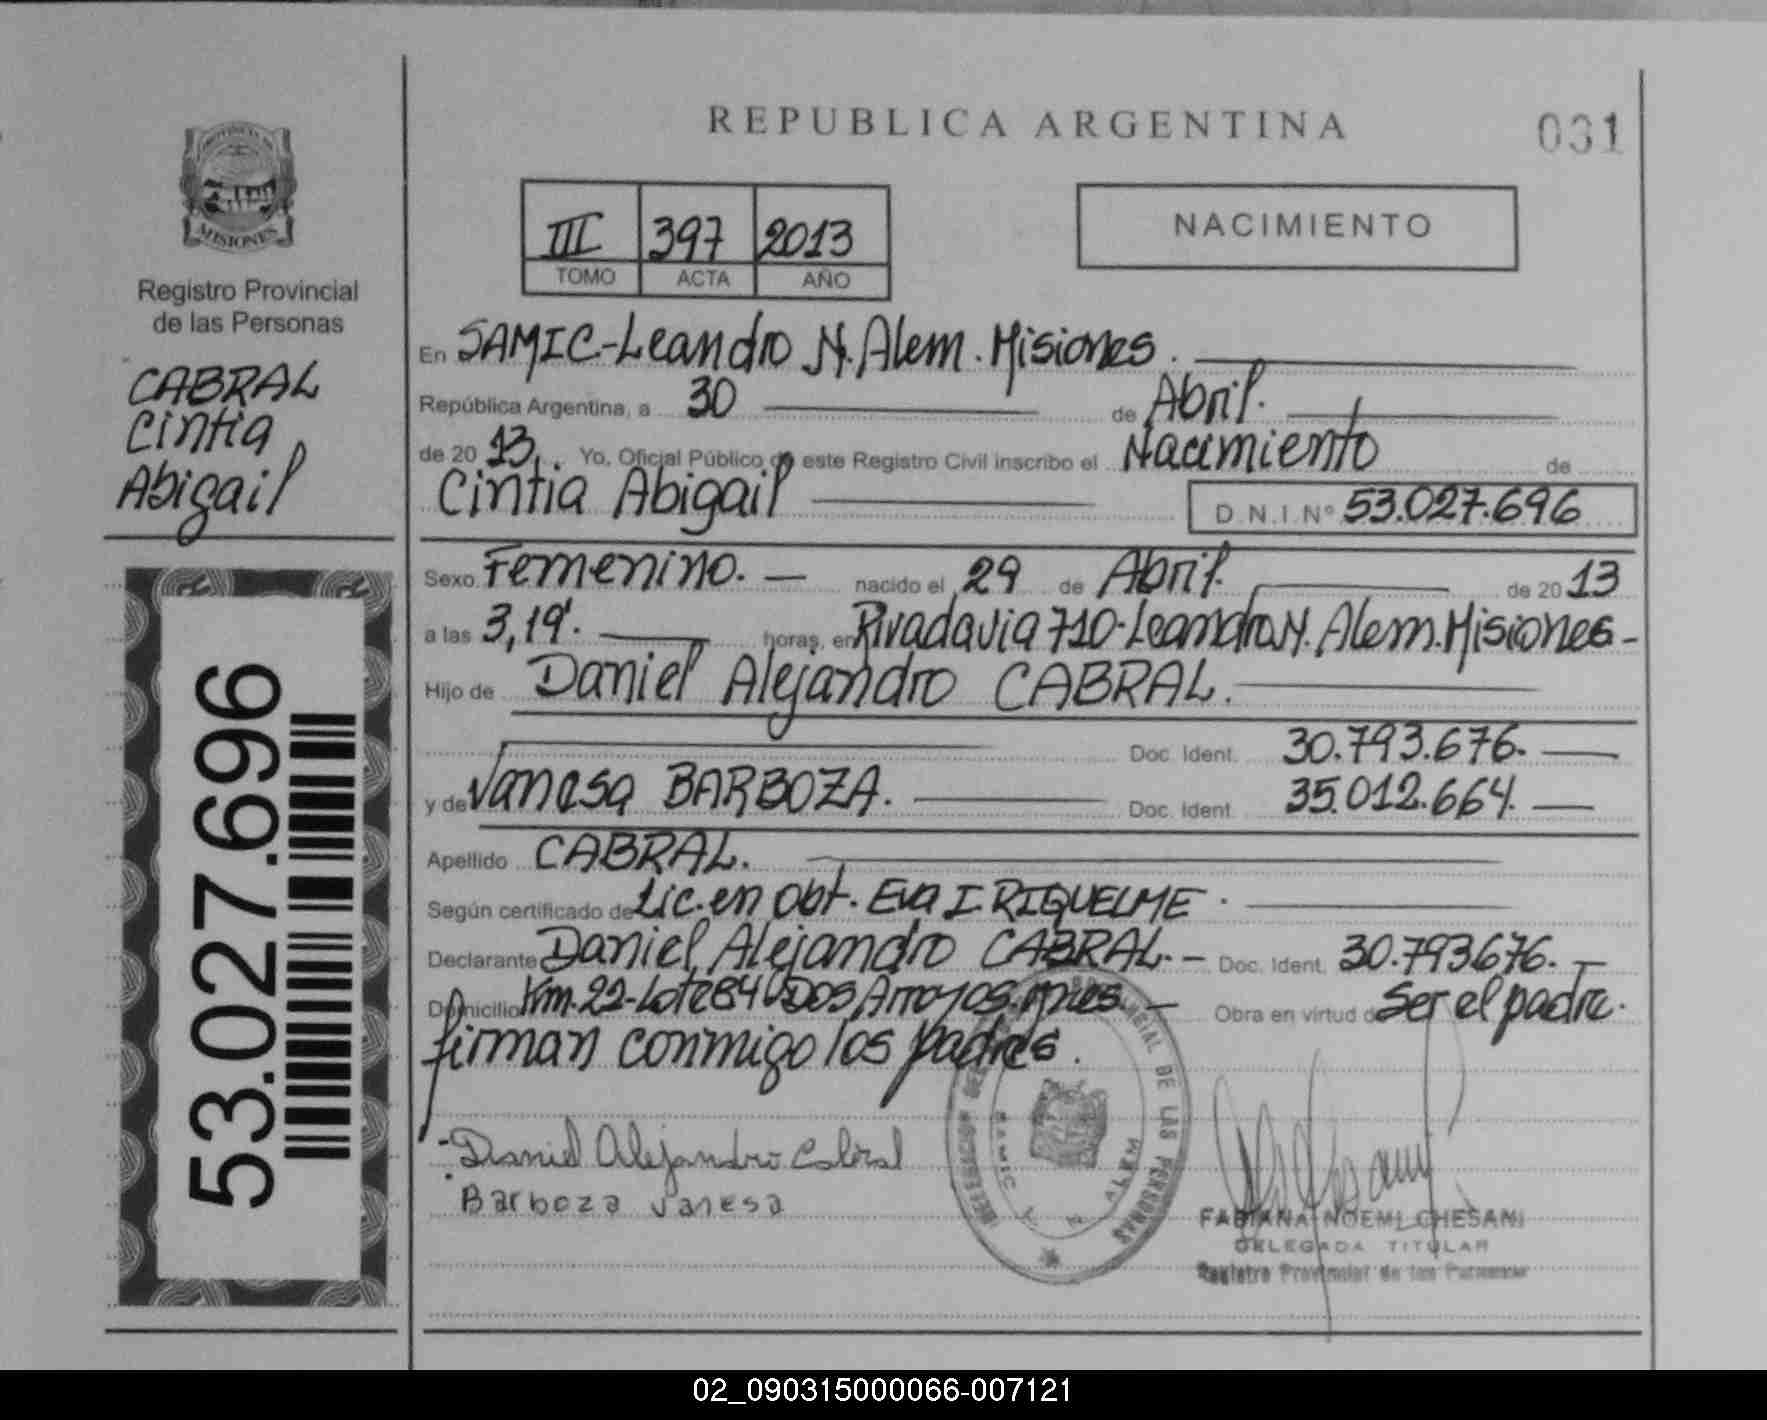 REPUBLICA ARGENTINA
031
PROVINCIA
MISIONES
Registro Provincial
de las Personas
CABRAL
Cintia
Abigail
53.027.696
III 397 2013
TOMO ACTA AÑO
NACIMIENTO
En SAMIC-Leandro N. Alem. Misiones.
República Argentina, a 30 de Abril.
de 20 13. Yo, Oficial Público de este Registro Civil inscribo el Nacimiento de
Cintia Abigail D.N.I. Nº 53.027.696
Sexo Femenino. nacido el 29 de Abril. de 20 13
a las 3,19'. horas, en Rivadavia 710-Leandro N. Alem. Misiones-
Hijo de Daniel Alejandro CABRAL.
Doc. Ident. 30.793.676.
y de Vanesa BARBOZA. Doc. Ident. 35.012.664.
Apellido CABRAL.
Según certificado de Lic. en Obt. Eva I. RIQUELME.
Declarante Daniel Alejandro CABRAL.- Doc. Ident. 30.793676.-
Domicilio Km. 22-Lote84 Dos Arroyos. Mnes. Obra en virtud de Ser el padre.
firman conmigo los padres.
Daniel Alejandro Cabral
Barboza Vanesa
PROVINCIAL DE LAS PERSONAS
SAMIC L N ALEM
FABIANA NOEMI CHESANI
DELEGADA TITULAR
Registro Provincial de las Personas
02_090315000066-007121